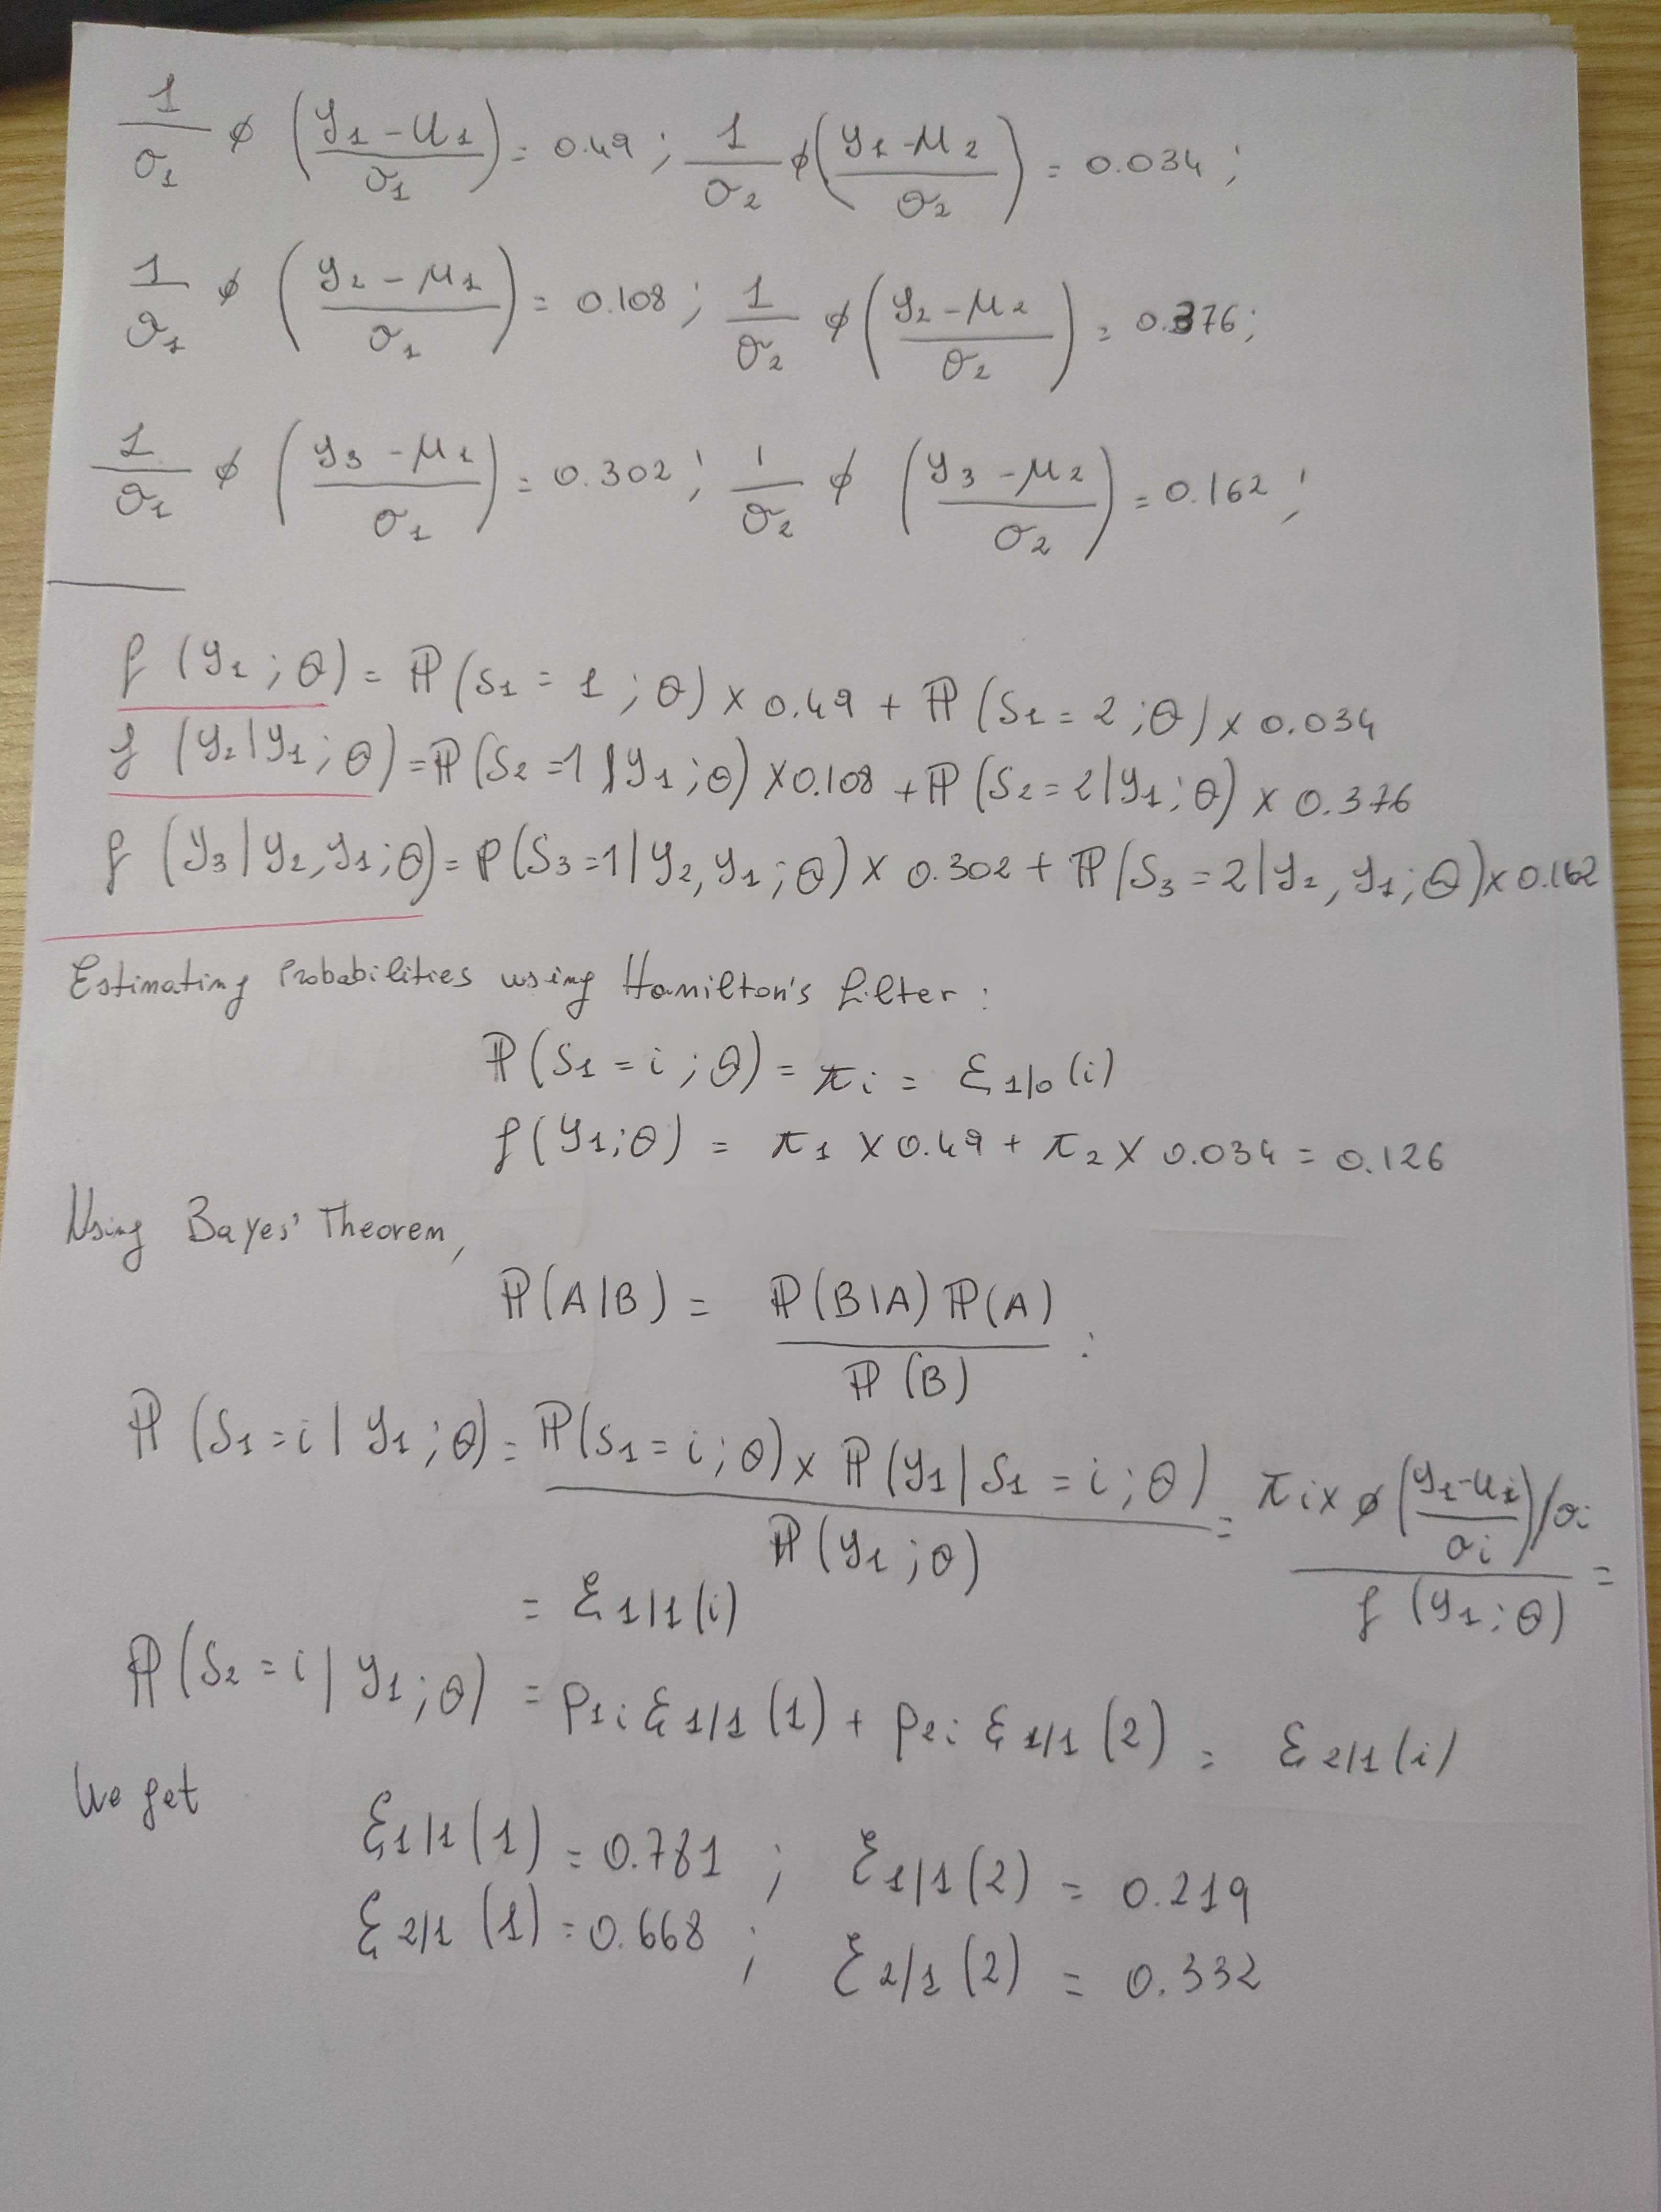 1/σ1 φ ((y1 - u1)/σ1) = 0.49 ; 1/σ2 φ ((y1 - μ2)/σ2) = 0.034 ;
1/σ1 φ ((y2 - μ1)/σ1) = 0.108 ; 1/σ2 φ ((y2 - μ2)/σ2) = 0.376 ;
1/σ1 φ ((y3 - μ1)/σ1) = 0.302 ; 1/σ2 φ ((y3 - μ2)/σ2) = 0.162 ;
f (y1 ; θ) = ℙ (S1 = 1 ; θ) × 0.49 + ℙ (S1 = 2 ; θ) × 0.034
f (y2 | y1 ; θ) = ℙ (S2 = 1 | y1 ; θ) × 0.108 + ℙ (S2 = 2 | y1 ; θ) × 0.376
f (y3 | y2, y1 ; θ) = P (S3 = 1 | y2, y1 ; θ) × 0.302 + ℙ (S3 = 2 | y2, y1 ; θ) × 0.162
Estimating Probabilities using Hamilton's filter :
ℙ (S1 = i ; θ) = πi = ξ1/0 (i)
f (y1 ; θ) = π1 × 0.49 + π2 × 0.034 = 0.126
Using Bayes' Theorem,
ℙ (A|B) = ℙ (B|A) ℙ (A) / ℙ (B) :
ℙ (S1 = i | y1 ; θ) = ℙ (S1 = i ; θ) × ℙ (y1 | S1 = i ; θ) / ℙ (y1 ; θ) = πi × φ ((y1 - ui)/σi) / σi / f (y1 ; θ) =
= ξ1/1 (i)
ℙ (S2 = i | y1 ; θ) = p1i ξ1/1 (1) + p2i ξ1/1 (2) = ξ2/1 (i)
We get
ξ1/1 (1) = 0.781 ; ξ1/1 (2) = 0.219
ξ2/1 (1) = 0.668 ; ξ2/1 (2) = 0.332